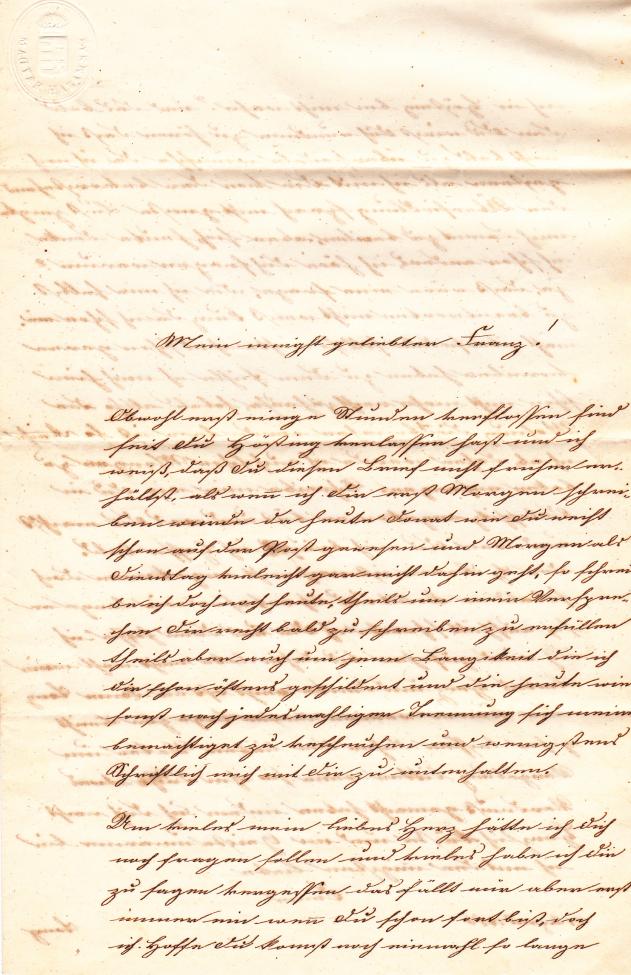 Mein innigst geliebter Franz!
Obwohl erst einige Stunden verflossen sind
seit du verlassen hast und ich
weiß, daß du diesen Brief nicht früher er-
hältst, als wenn ich dir erst Morgen schrei-
ben würde da heute wie du weißt
schon auf der Post gewesen und Morgen als
Dienstag vieleicht gar nicht dahin geht, so schrei
be ich doch noch heute, theils um mein Verspre-
chen dir recht bald zu schreiben zu erfüllen
theils aber auch um jene Bangikeit die ich
dir schon öfters geschildert und die heute wie
sonst nach jedesmahliger Trennung sich meiner
bemächtiget zu verscheuchen und wenigstens
Schriftlich mich mit dir zu unterhalten.
Um vieles mein liebes Herz hätte ich dich
noch fragen sollen und vieles habe ich dir
zu sagen vergessen das fällt mir aber erst
immer ein wenn du schon fort bist, doch
ich hoffe du komst noch einmahl so lange